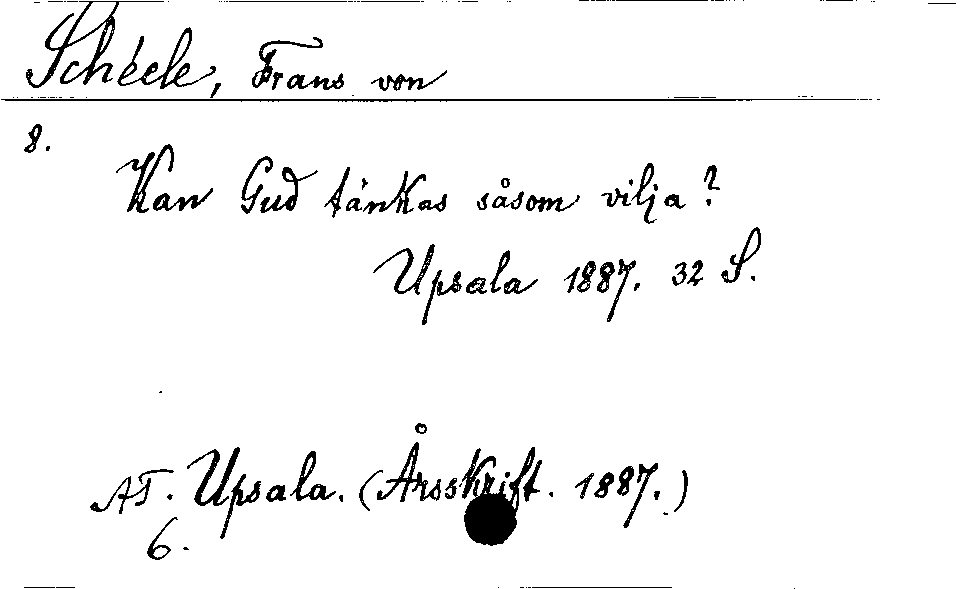 Schéele, Frans von
8.
Kan Gud tänkas såsom vilja?
Upsala 1887. 32 S.
AT. Upsala. (Årsskrift. 1887.)
6.